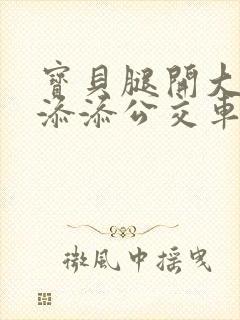 寶貝腿開大
添添公交車
微風中摇曳